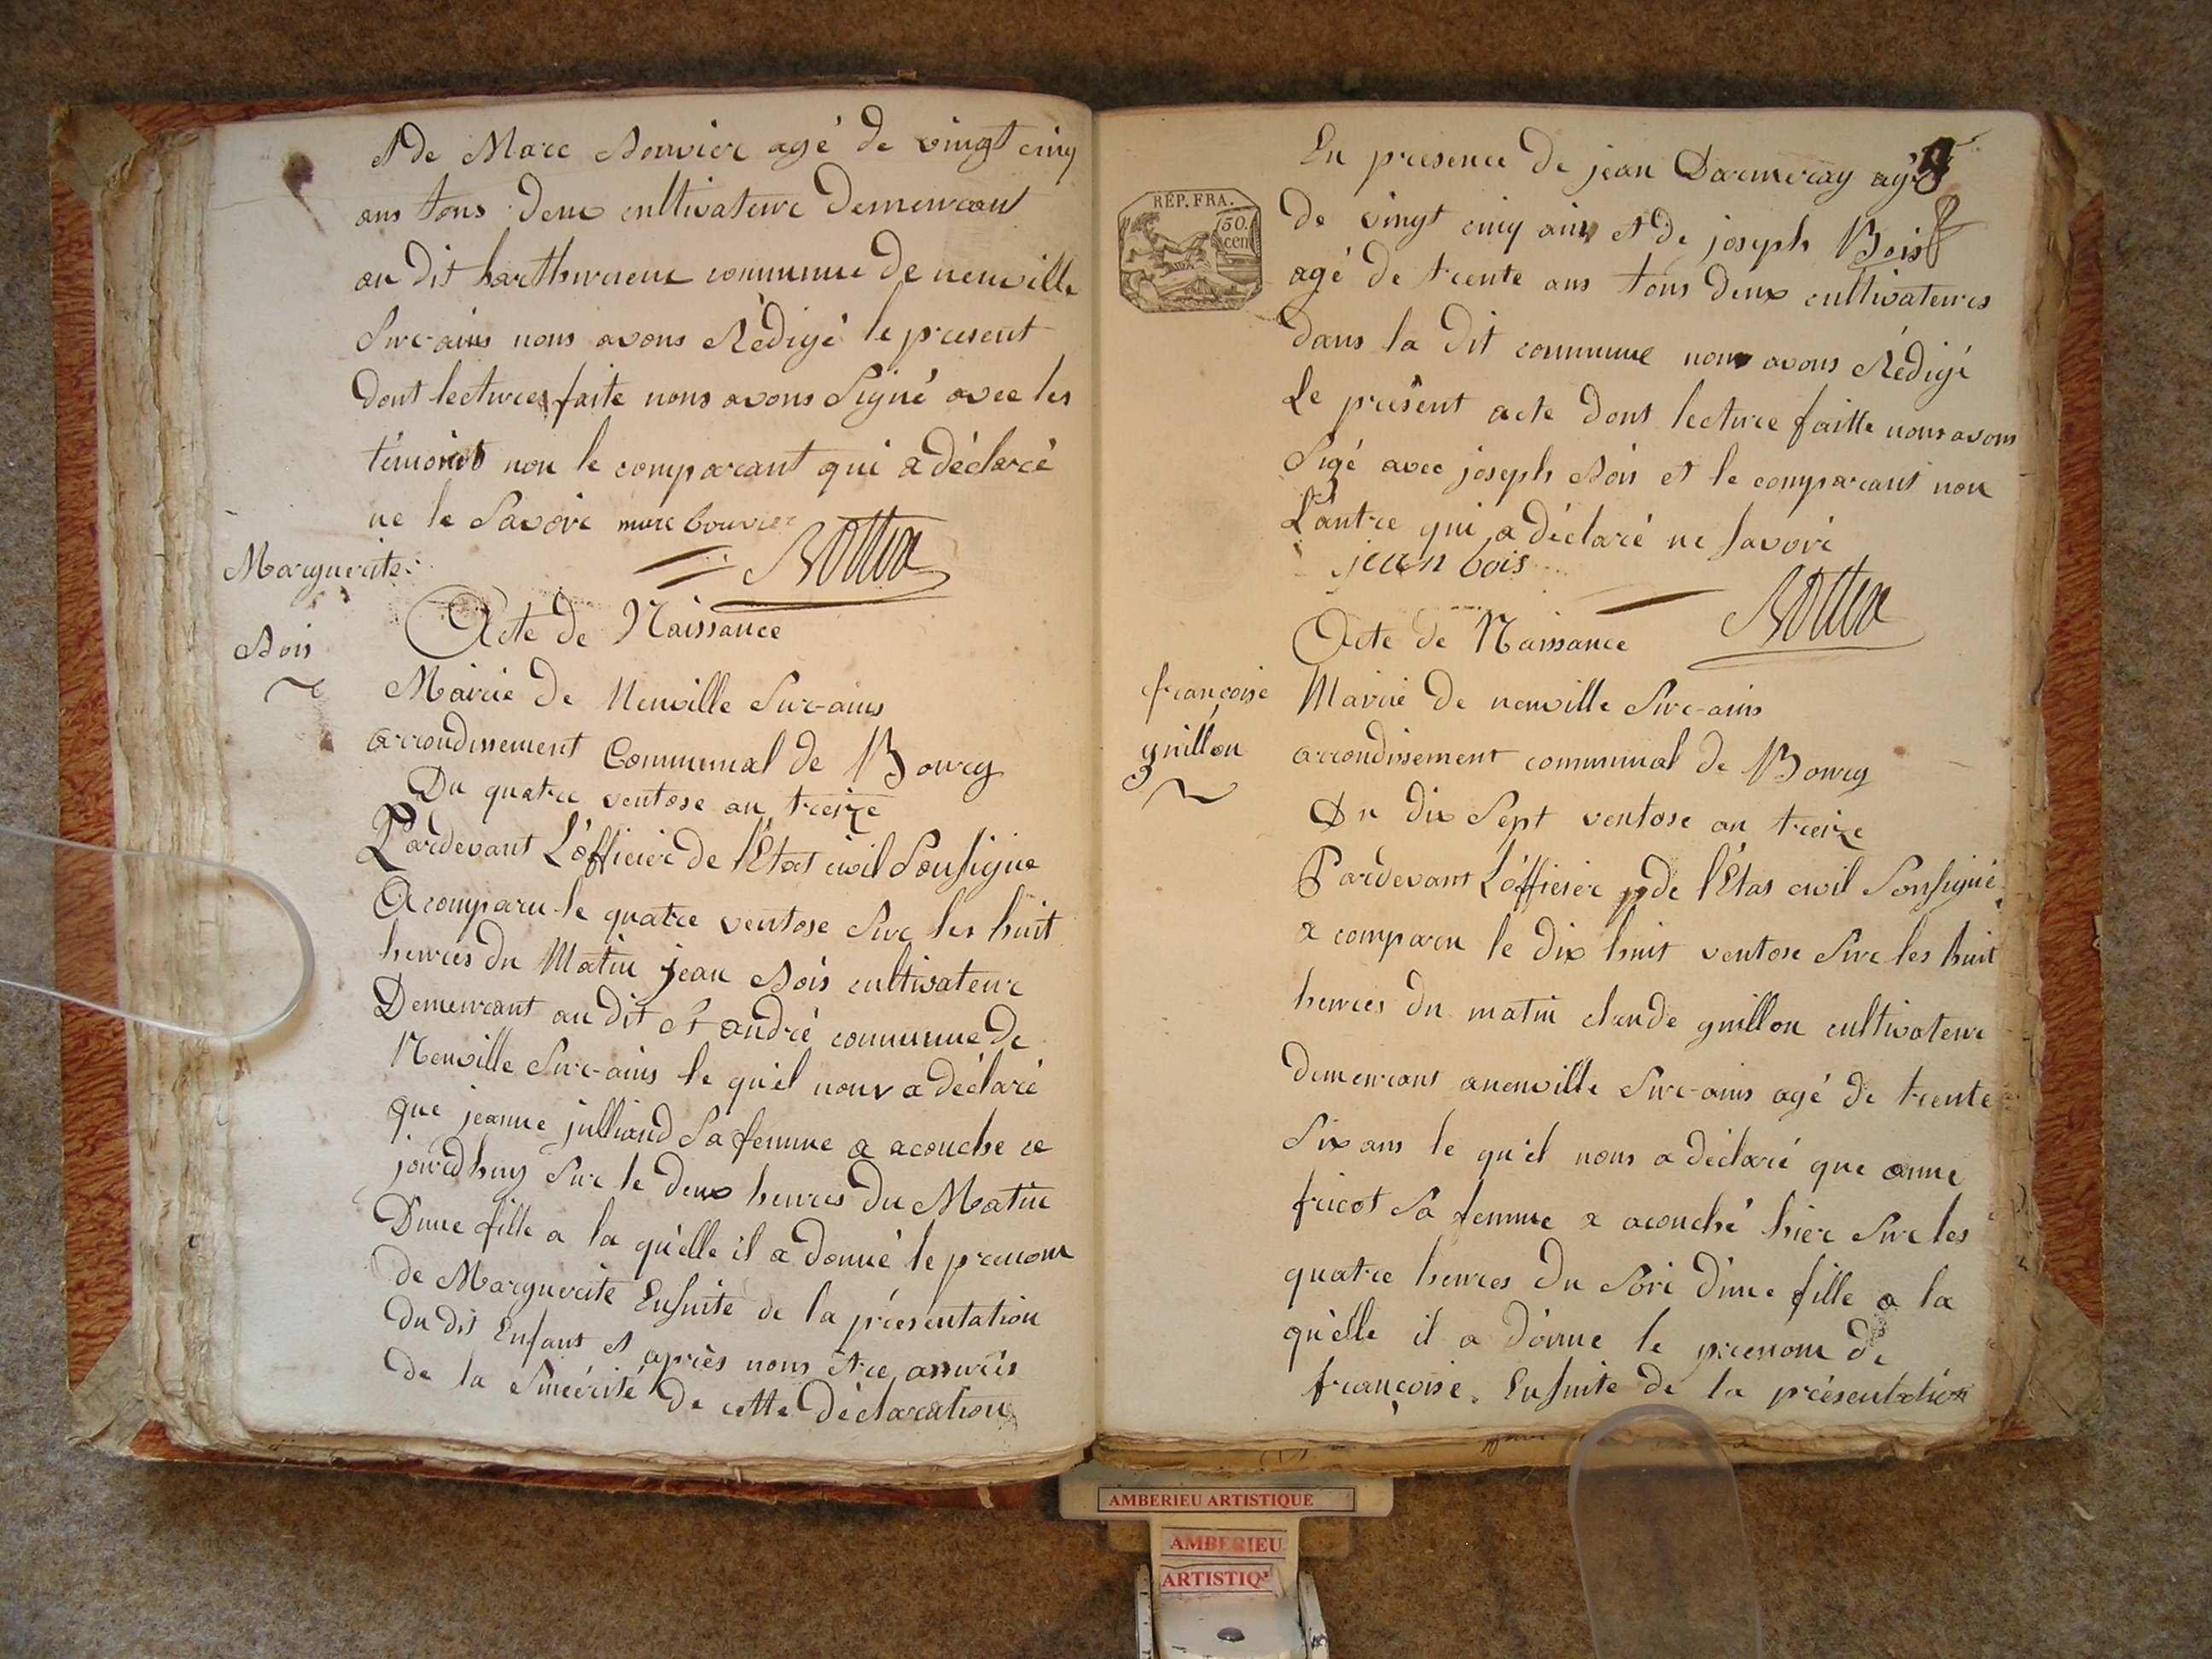 et de Marc Bouvier agé de vingt cinq
ans tous deux cultivateur demeurant
au dit commune de neuville
Sur-ains nous avons Rédigé le present
dont lecture faite nous avons Signé avec les
témoins non le comparant qui a déclaré
ne le Savoir marc bouvier
Marguerite
Bois
Acte de Naissance
Mairie de Neuville Sur-ains
arrondissement Communal de Bourg
Du quatre ventose an treize
Pardevant L'officier de l'Etat civil Sousigné
A comparu le quatre ventose Sur les huit
heures du Matin jean Bois cultivateur
Demeurant au dit St andré commune de
Neuville Sur-ains le qu'el nous a déclaré
que jeanne julliand Sa femme a acouche ce
jourdhuy Sur le deux heures du Matin
D'une fille a la qu'elle il a donné le prenom
de Marguerite Ensuite de la présentation
du dit Enfant et après nous être assurés
de la Sincérité de cette déclaration
En presence de jean Darmeray agé
de vingt cinq ans et de joseph Bois
agé de trente ans tous deux cultivateurs
dans la dit commune nous avons Rédigé
Le présent acte dont lecture faitte nous avons
Sigé avec joseph Bois et le comparant non
L'autre qui a déclaré ne Savoir
jean bois
RÉP. FRA.
50.
cen
Acte de Naissance
françoise
guillon
Mairie de neuville Sur-ains
arrondissement communal de Bourg
Du dix Sept ventose an treize
Pardevant L'officier de l'Etat civil Sousigné
a comparu le dix huit ventose Sur les huit
heures du matin claude guillon cultivateur
demeurant aneuville Sur-ains agé de trente
Six ans le qu'el nous a déclaré que anne
fricot Sa femme a acouché hier Sur les
quatre heures du Soir d'une fille a la
qu'elle il a donne le prenom de
françoise. Ensuite de la présentation
AMBERIEU ARTISTIQUE
AMBERIEU
ARTISTIQ